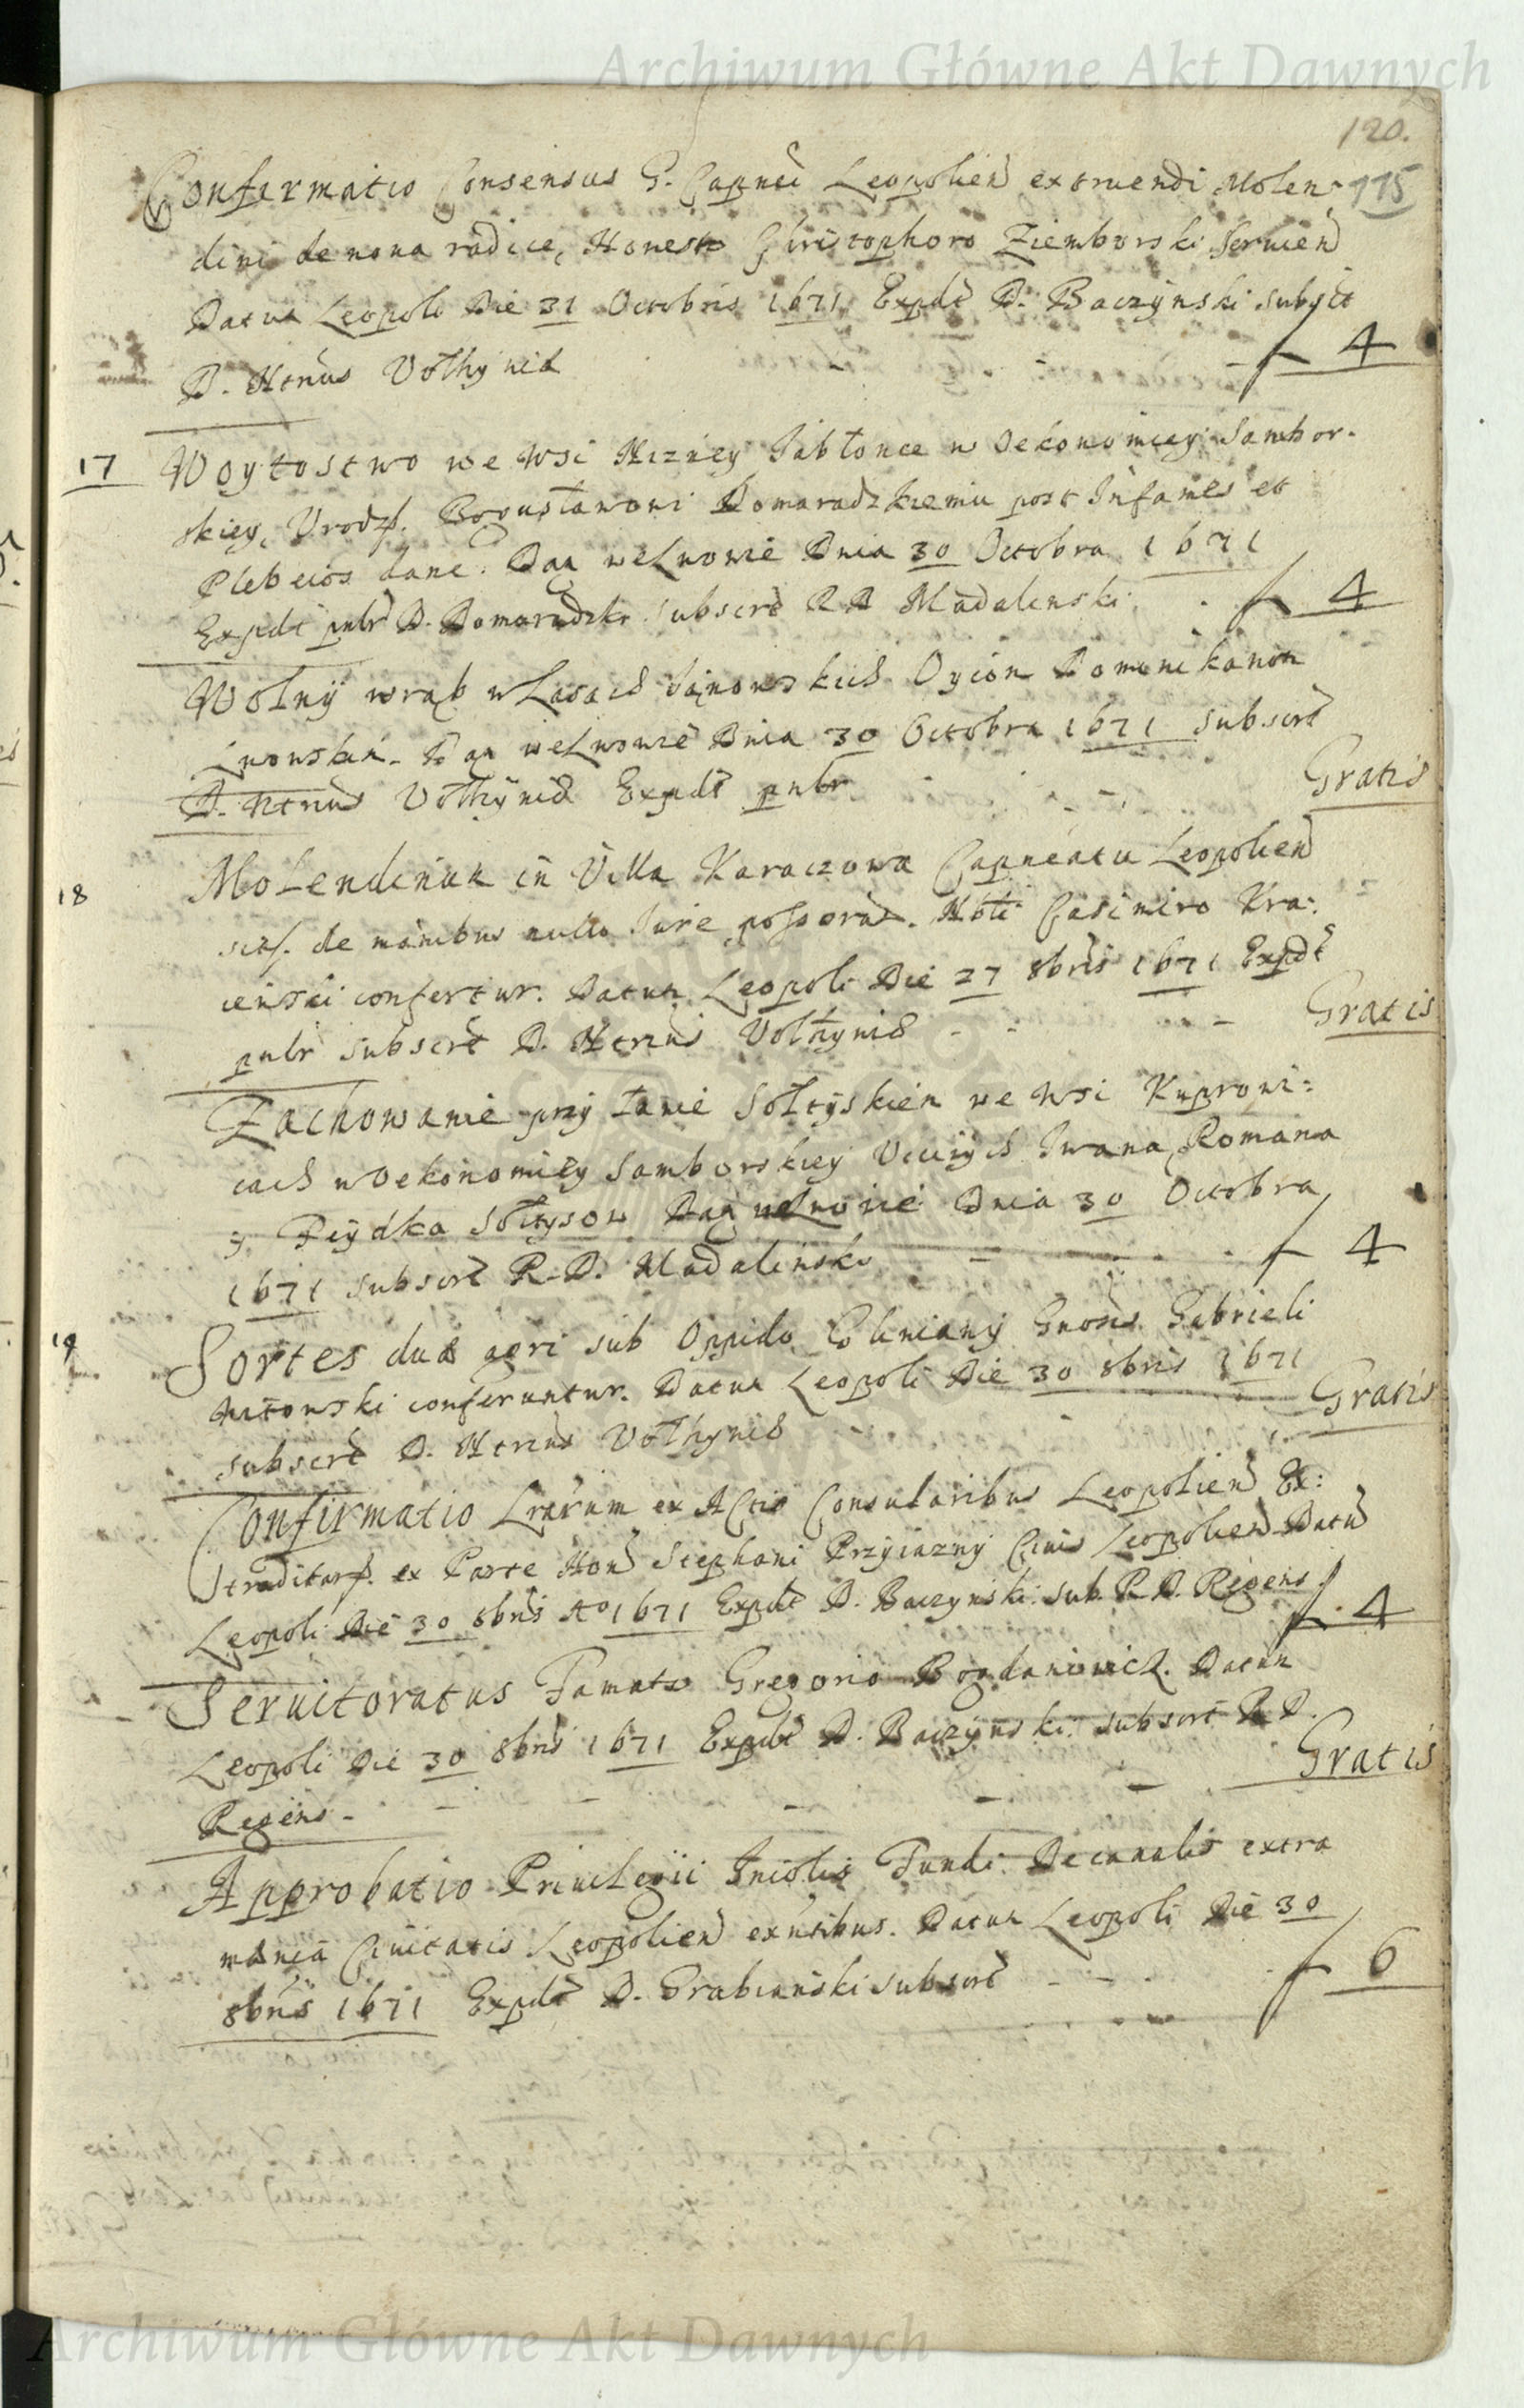 Archiwum Główne Akt Dawnych
120.
Confirmatio Consensus G. Capnei Leopolien extruendi Molen- 115
dini de nova radice, Honesto Christophoro Ziemborski servien
Datum Leopoli Die 31 Octobris 1671 Expdt D. Baczynski subscr
D. Ntrius Volhyniæ f 4
17 Woytostwo we wsi Nizney Jabłonce w Oekonomiey Sambor-
skiey, Urodz. Bogusławowi Domaradzkiemu post Infames et
Plebeios dane. Dan we Lwowie Dnia 30 Octobra 1671
Expdt pntr D. Domaradzki subscrt R D Madalenski f 4
Wolny wrąb w Lasach Janowskich Oycom Dominikanom
Lwowskim. Dan we Lwowie Dnia 30 Octobra 1671 subscrt
D. Ntrius Volhyniæ Expdt pntr Gratis
18 Molendinum in Villa Karaczowa Capneatu Leopolien
de manibus nullo Jure possor. Nbli Casimiro Kra-
cienski confertur. Datum Leopoli Die 27 8bris 1671 Expdt
pntr subscrt D. Ntrius Volhyniæ Gratis
Zachowanie przy Łanie Sołtyskiem we wsi Kuprowi=
cach w Oekonomiey Samborskiey Uczciwych Iwana, Romana
y Feydka Sołtysow Dan we Lwowie Dnia 30 Octobra
1671 subscrt R. D. Madalinski f 4
19 Sortes duæ agri sub Oppido Gliniany Gnoso Gabrieli
Witowski conferuntur. Datum Leopoli Die 30 8bris 1671 Gratis
subscrt D. Ntrius Volhyniæ
Confirmatio Lrarum ex Actis Consularibus Leopolien Ex:
traditar. ex Parte Hon Stephani Przyiazny Civis Leopolien Datu
Leopoli Die 30 8bris Ao 1671 Expdt D. Baczynski. Sub. R. D. Regens f 4
Servitoratus Famato Gregorio Bogdanowicz. Datum
Leopoli Die 30 8bris 1671 Expdt D. Baczynski. subscrt R D.
Regens - Gratis
Approbatio Privilegii Incolis Fundi Decanalis extra
mænia Civitatis Leopolien exntibus. Datum Leopoli Die 30
8bris 1671 Expdt D. Grabianski subscrt f 6
Archiwum Główne Akt Dawnych